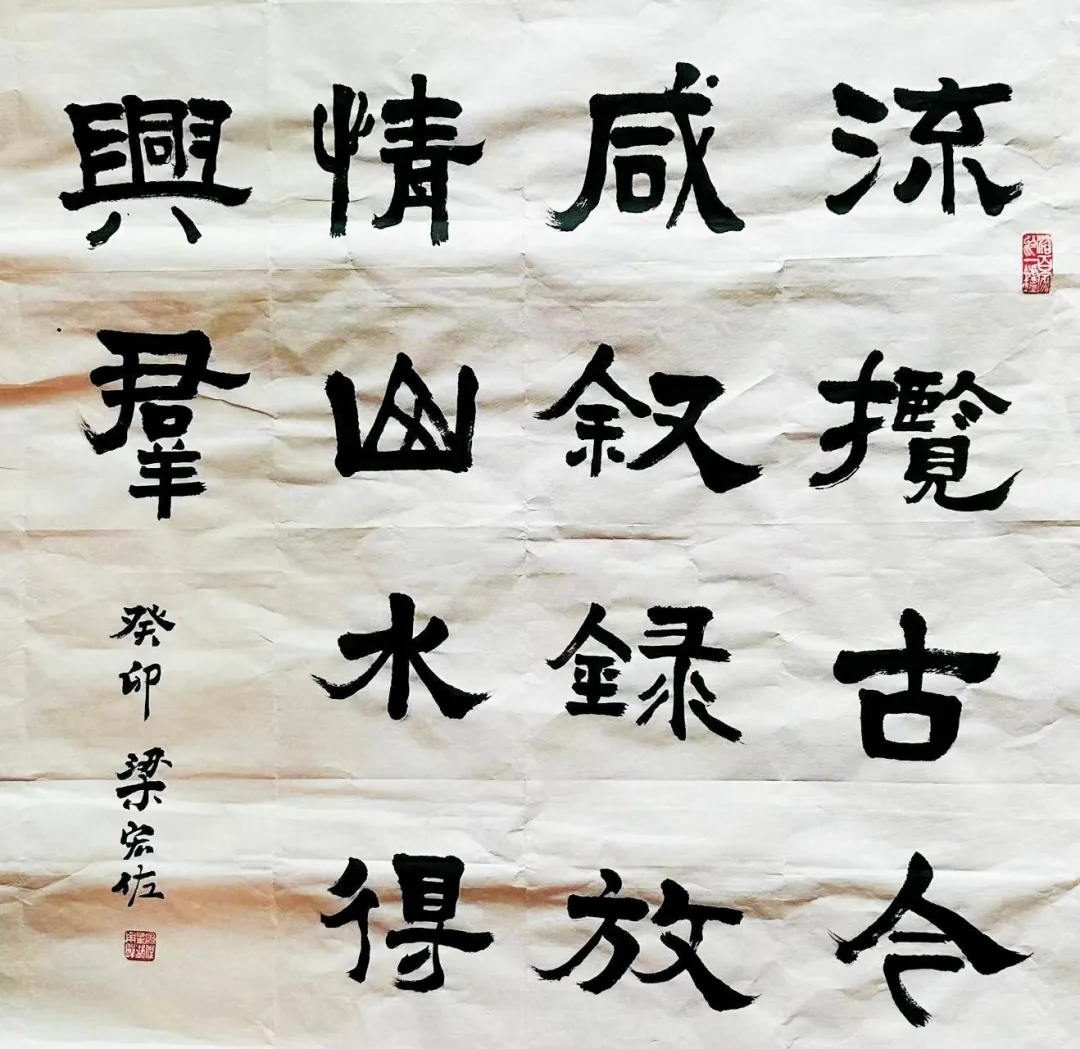 流攬古今
咸叙録放
情山水得
興羣
癸卯 梁宏佐